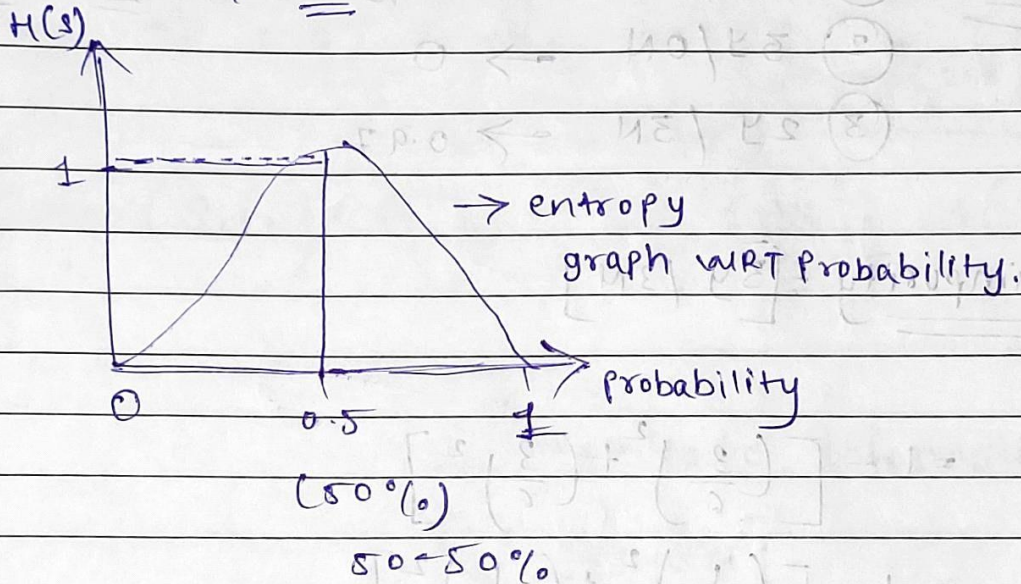 H(S)
1
→ entropy
graph WRT Probability.
probability
0
0.5
1
(50%)
50-50%